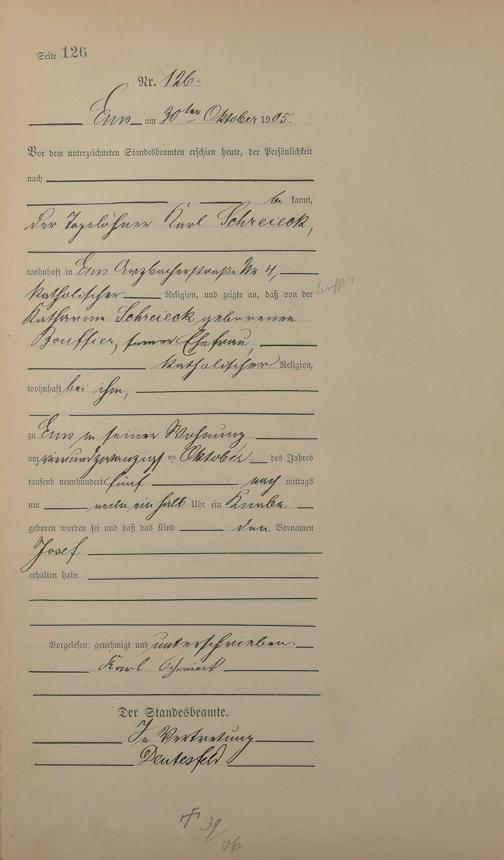 Seite 126
Nr. 126.
Ems am 30ten Oktober 1905.
Vor dem unterzeichneten Standesbeamten erschien heute, der Persönlichkeit
nach
be kannt,
der Tagelöhner Karl Schreieck,
wohnhaft in Ems Arzbacherstraße Nr 4,
katholischer Religion, und zeigte an, daß von der
Katharine Schreieck geborenen
Bouffier, seiner Ehefrau,
katholischer Religion,
wohnhaft bei ihm,
zu Ems in seiner Wohnung
am vierundzwanzigsten Oktober des Jahres
tausend neunhundert fünf nach mittags
um neun einhalb Uhr ein Knabe
geboren worden sei und daß das Kind den Vornamen
Josef
erhalten habe.
Vorgelesen, genehmigt und unterschrieben.
Karl Schreieck
Der Standesbeamte.
In Vertretung
Deutesfeld
† 39/06